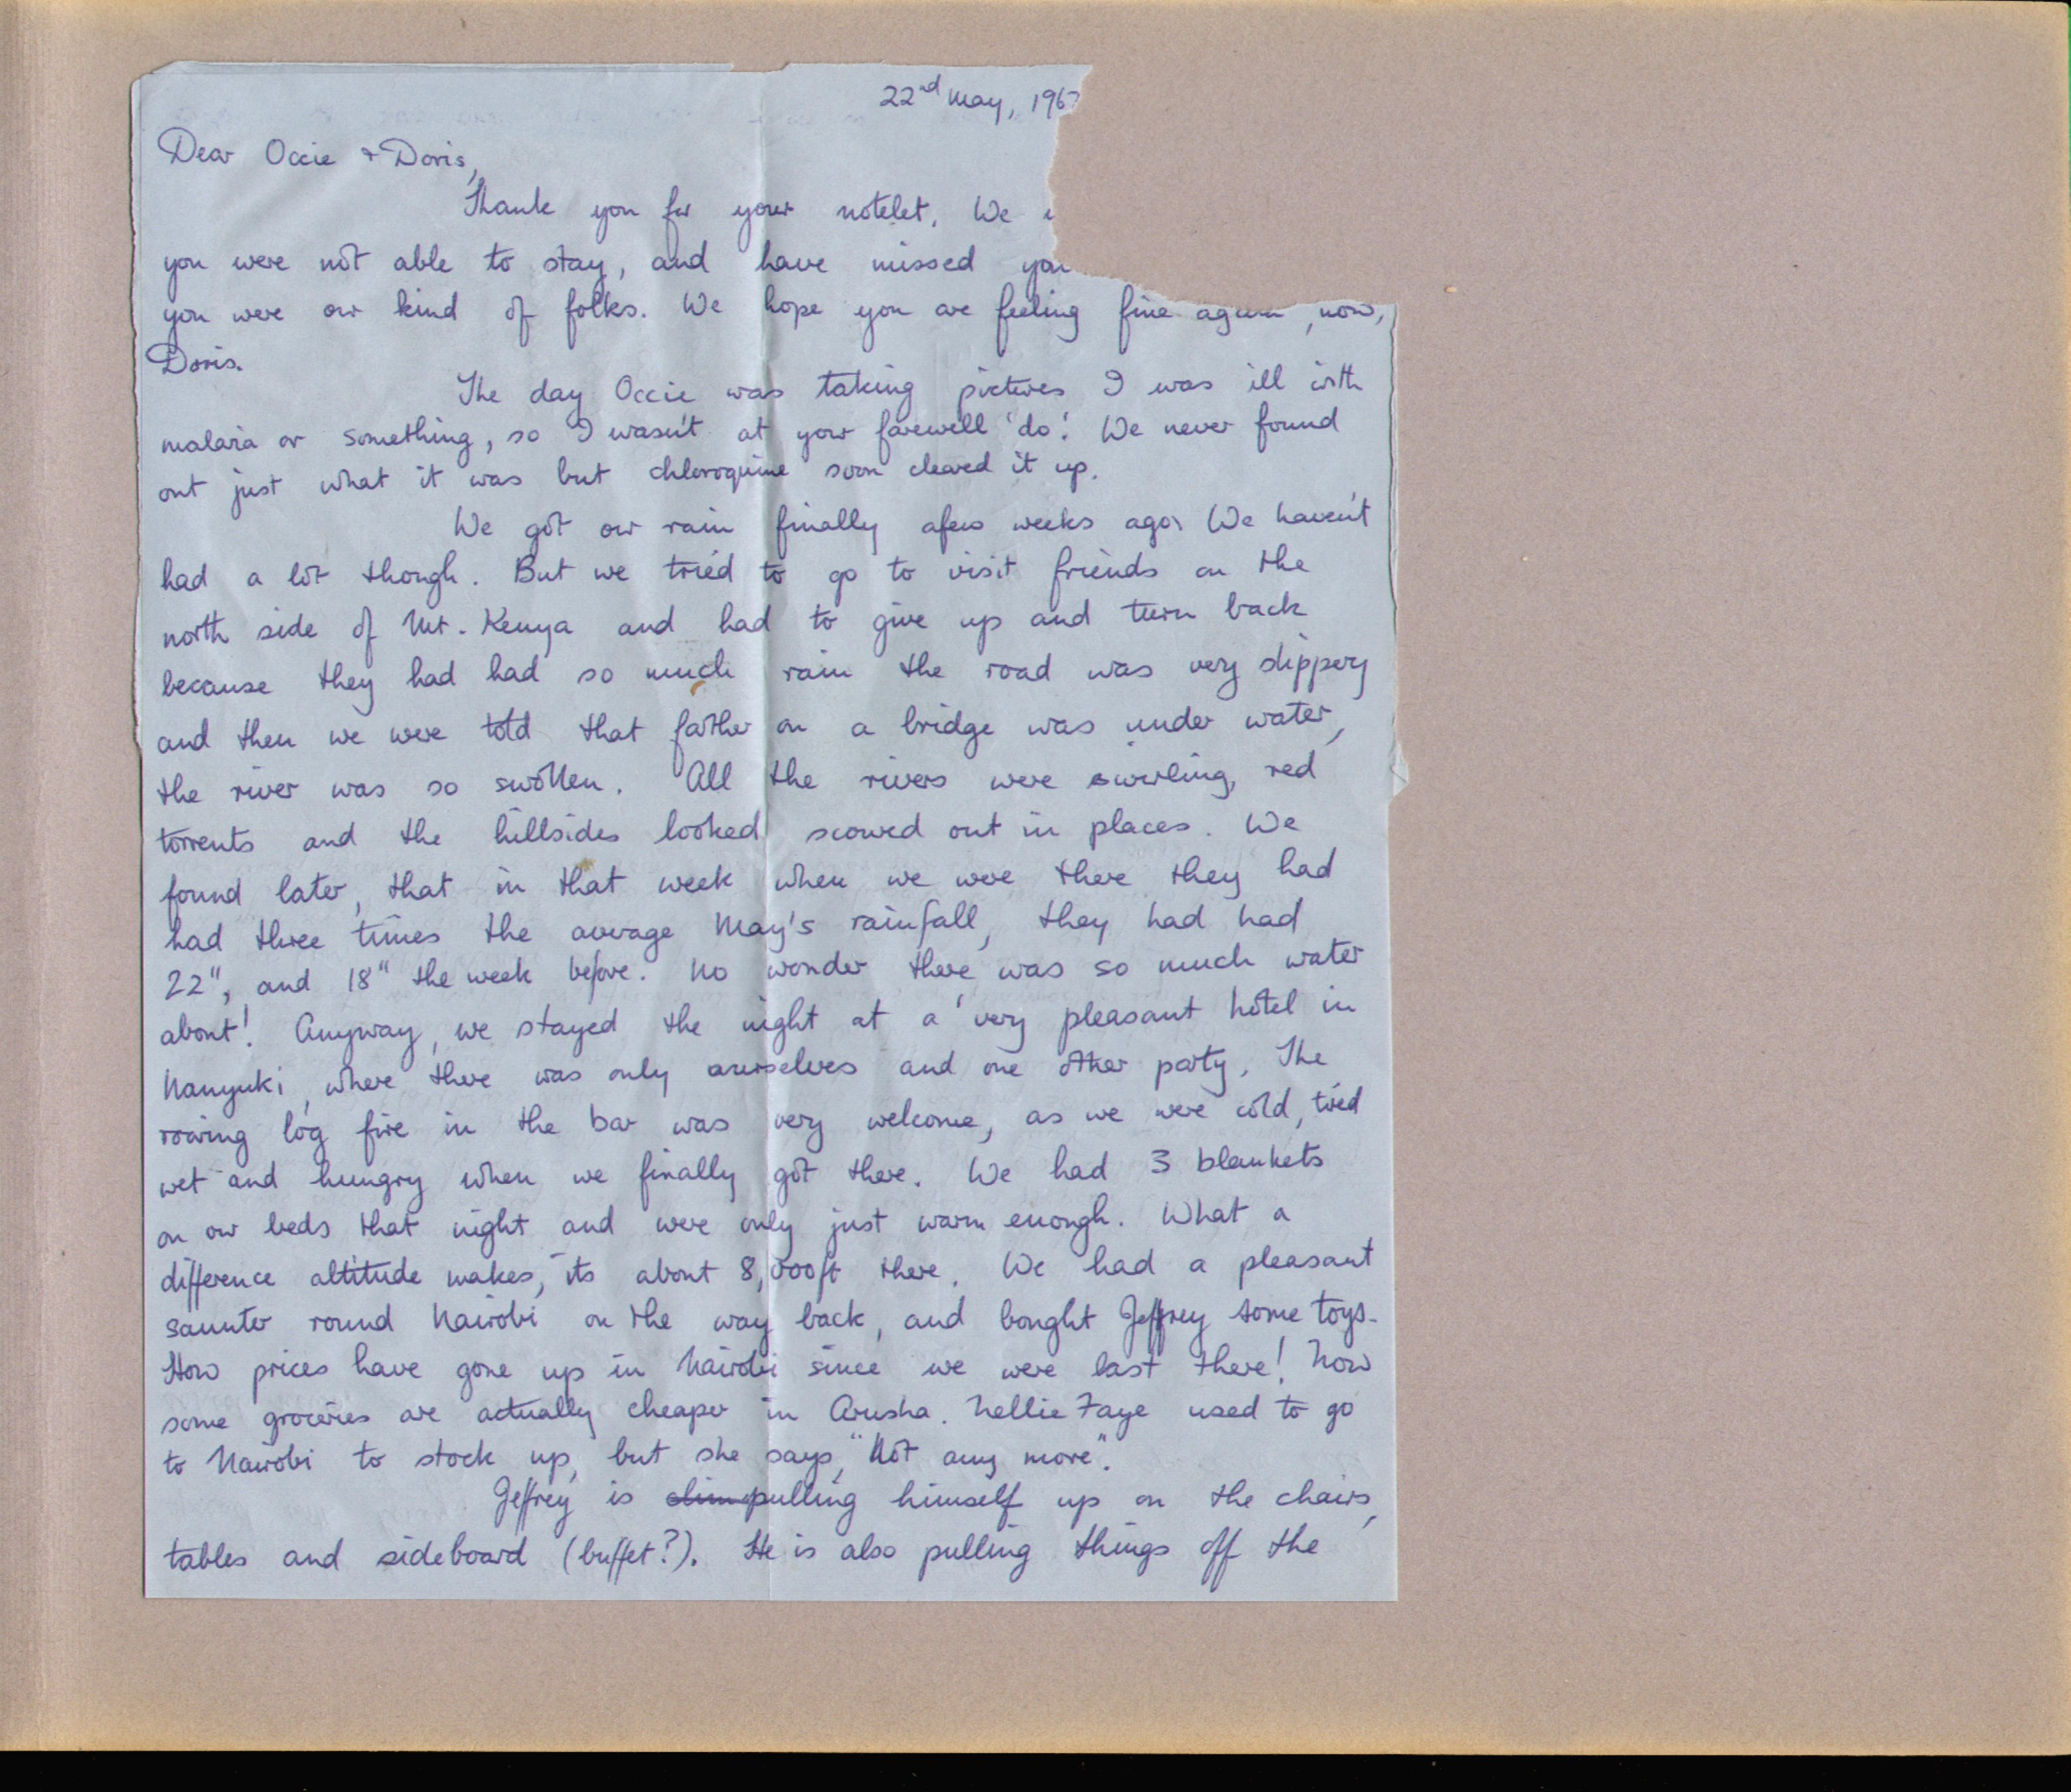 22nd May, 196
Dear Occie & Doris,
Thank you for your notelet. We
you were not able to stay, and have missed you
you were our kind of folks. We hope you are feeling fine again, now,
Doris.
The day Occie was taking pictures I was ill with
malaria or something, so I wasn't at your farewell 'do'. We never found
out just what it was but chloroquine soon cleared it up.
We got our rain finally a few weeks ago. We haven't
had a lot though. But we tried to go to visit friends on the
north side of Mt. Kenya and had to give up and turn back
because they had had so much rain the road was very slippery
and then we were told that farther on a bridge was under water,
the river was so swollen. All the rivers were swirling, red
torrents and the hillsides looked scoured out in places. We
found later, that in that week when we were there they had
had three times the average May's rainfall, they had had
22", and 18" the week before. No wonder there was so much water
about! Anyway, we stayed the night at a very pleasant hotel in
Nanyuki, where there was only ourselves and one other party. The
roaring log fire in the bar was very welcome, as we were cold, tired
wet and hungry when we finally got there. We had 3 blankets
on our beds that night and were only just warm enough. What a
difference altitude makes, its about 8,000ft there. We had a pleasant
saunter round Nairobi on the way back, and bought Jeffrey some toys.
How prices have gone up in Nairobi since we were last there! Now
some groceries are actually cheaper in Arusha. Nellie Faye used to go
to Nairobi to stock up, but she says, "Not any more".
Jeffrey is pulling himself up on the chairs,
tables and sideboard (buffet?). He is also pulling things off the